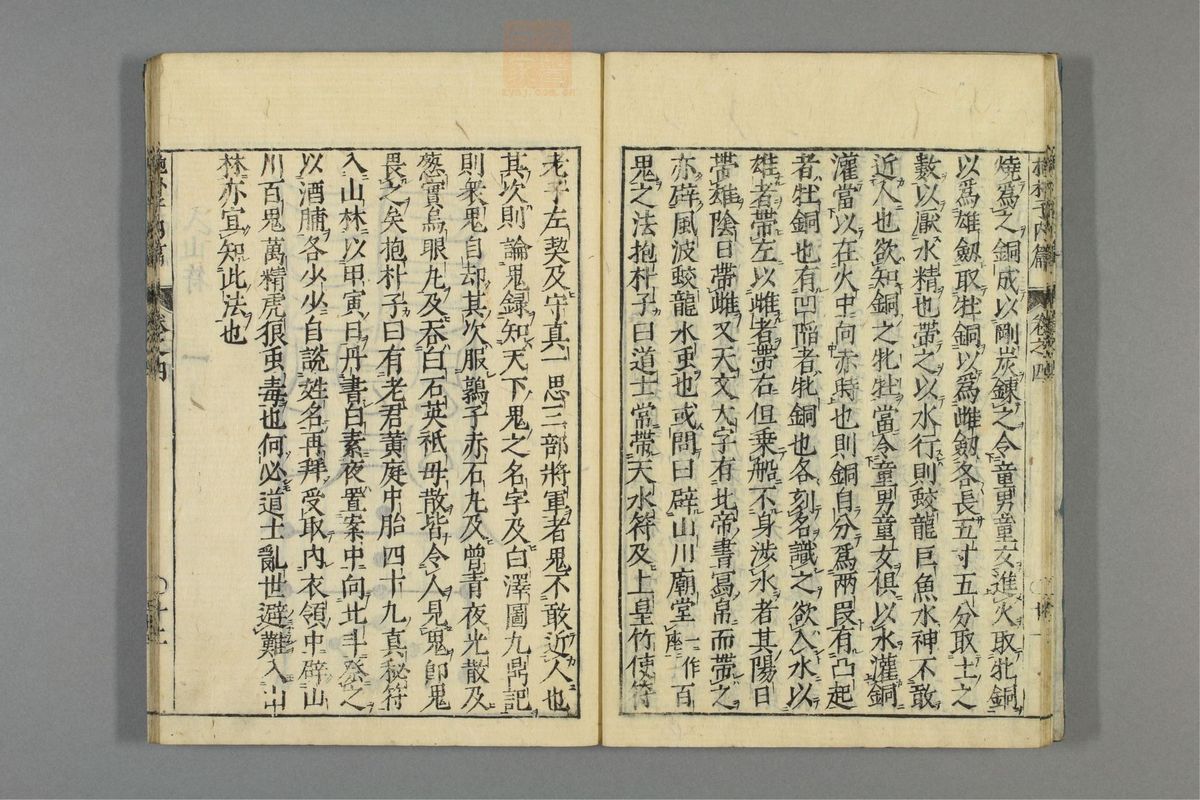 燒爲之銅成以剛炭鍊之令童男童女進火取牝銅
以爲雄劔取牡銅以爲雌劔各長五寸五分取土之
數以厭水精也帶之以水行則蛟龍巨魚水神不敢
近人也欲知銅之牝牡當令童男童女俱以水灌銅
灌當以在火中向赤時也則銅自分爲兩叚有凸起
者牡銅也有凹陷者牝銅也各刻名識之欲入水以
雄者帶左以雌者帶右但乗船不身渉水者其陽日
帶雄陰日帶雌又天文大字有北帝書寫帛而帶之
亦辟風波蛟龍水虫也或問曰辟山川廟堂一作座百
鬼之法抱朴子曰道士常帶天水符及上皇竹使符
老子左契及守真一思三部將軍者鬼不敢近人也
其次則論鬼録知天下鬼之名字及白澤圖九鼎記
則衆鬼自却其次服鶉子赤石九及曾青夜光散及
葱實烏眼九及吞白石英祇母散皆令人見鬼即鬼
畏之矣抱朴子曰有老君黄庭中胎四十九真秘符
入山林以甲寅日丹書白素夜置案中向北斗祭之
以酒脯各少少自説姓名再拜受取内衣領中辟山
川百鬼萬精虎狼虫毒也何必道士亂世避難入山
林亦宜知此法也
抱朴子内篇
卷之四